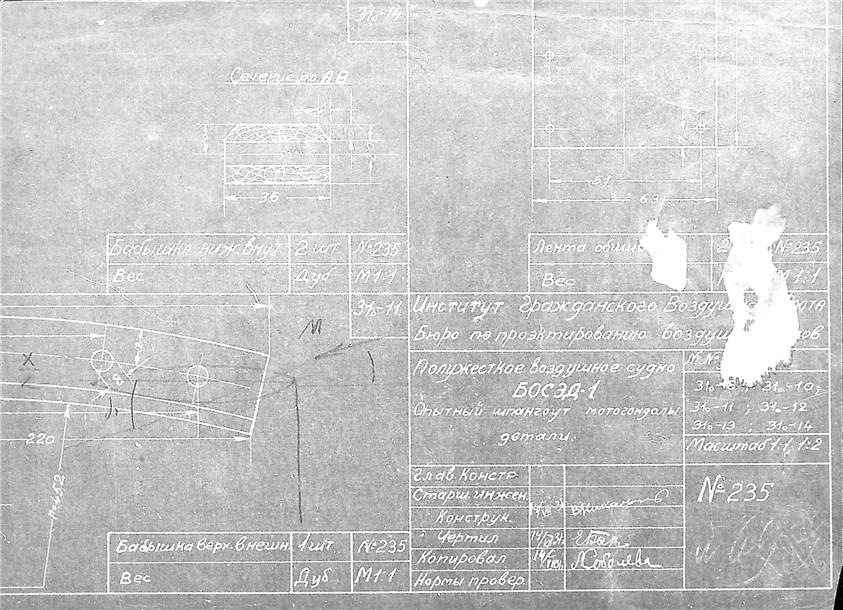 31₀-14
Сечение по АВ
5
8
20
36
51
63
Бабышка ниж внут 2 шт №235
Вес Дуб М 1:1
Лента обши 2 №235
Вес М 1:1
31₀-11
Институт Гражданского Воздуш
Бюро по проэктированию воздуш
Полужесткое воздушное судно
БОСЭД-1
Опытный шпангоут мотогондолы
детали.
31₀-10;
31₀-11 ; 31₀-12
31₀-13 ; 31₀-14
Масштаб 1:1, 1:2
М
Х
8
220
Глав. Констр.
Старш. инжен.
Конструк.
Чертил
Копировал Соболева
Нормы провер.
№235
Бабышка верх. внешн. 1 шт №235
Вес Дуб М 1:1